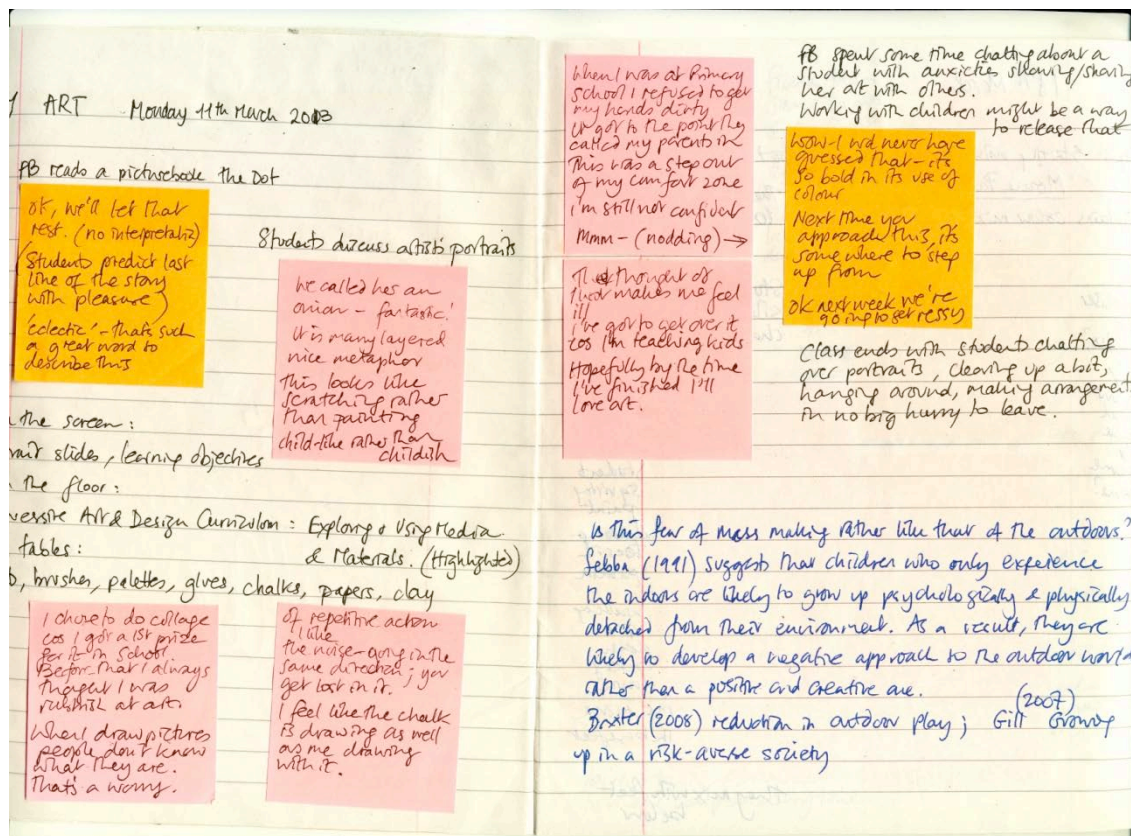 ART Monday 11th March 2013
PB reads a picturebook the Dot
ok, we'll let that
rest. (no interpretatin)
(Students predict last
line of the story
with pleasure)
'eclectic' - that's such
a great word to
describe this
Students discuss artists portraits
we called her an
onion - fantastic!
it is many layered
nice metaphor
This looks like
scratching rather
than painting
child-like rather than
childish
the screen:
slides, learning objectives
the floor:
Art & Design Curriculum: Exploring & Using Media
& Materials. (Highlighted)
tables:
brushes, palettes, glves, chalks, papers, clay
I chose to do collage
cos I got a 1st prize
for it in School
Before that I always
thought I was
rubbish at art.
When I draw pictures
people don't know
what they are.
That's a worry.
of repetitive action
I like
the noise - going in the
same direction; you
get lost in it.
I feel like the chalk
is drawing as well
as me drawing
with it.
When I was at Primary
school I refused to get
my hands dirty
it got to the point they
called my parents in
This was a step out
of my comfort zone
i'm still not confident
Mmm - (nodding) →
The thought of
that makes me feel
ill
I've got to get over it
cos I'm teaching kids
Hopefully by the time
I've finished I'll
love art.
PB spent some time chatting about a
student with anxieties showing/sharing
her art with others.
Working with children might be a way
to release that
Wow - I wd never have
guessed that - its
so bold in its use of
colour
Next time you
approach this, its
some where to step
up from
ok next week we're
going to get messy
Class ends with students chatting
over portraits, clearing up a bit,
hanging around, making arrangements
in no big hurry to leave.
Is this fear of mess making rather like that of the outdoors?
Sebba (1991) suggests that children who only experience
the indoors are likely to grow up psychologically & physically
detached from their environment. As a result, they are
likely to develop a negative approach to the outdoor world
rather than a positive and creative one.
(2007)
Brixter (2008) reduction in outdoor play; Gill Growing
up in a risk-averse society